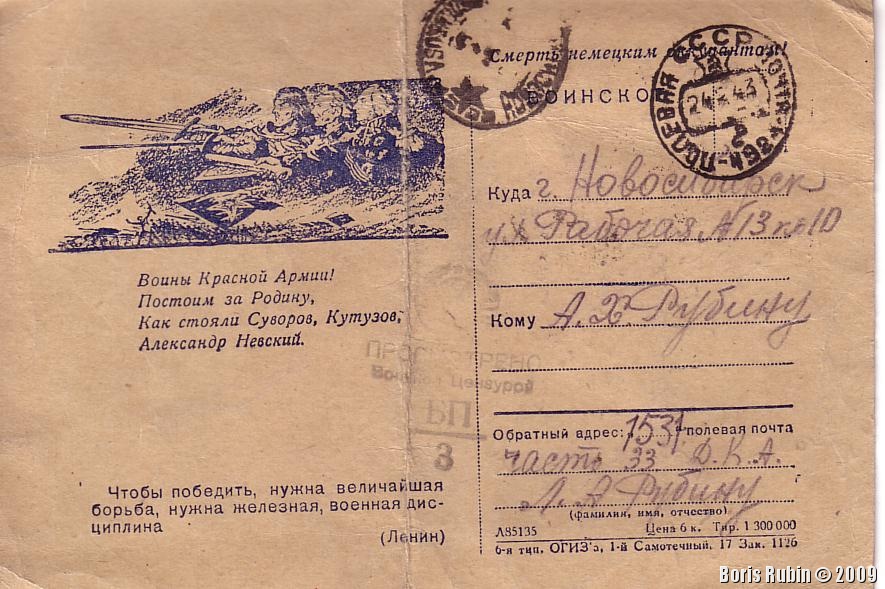 Смерть немецким оккупантам!
ВОИНСКОЕ
СССР
ПОЛЕВАЯ ПОЧТА
24 43
Куда г. Новосибирск
ул Рабочая N 13 кв 10
Воины Красной Армии!
Постоим за Родину,
Как стояли Суворов, Кутузов,
Александр Невский.
Кому А. Х. Рубину
ПРОСМОТРЕНО
Военной Цензурой
3
Обратный адрес: 1531 полевая почта
часть 33 Д. К. А.
Л. А Рубину
(фамилия, имя, отчество)
Чтобы победить, нужна величайшая
борьба, нужна железная, военная дис-
циплина
(Ленин)
Л85135 Цена 6 к. Тир. 1 300 000
6-я тип. ОГИЗ'а, 1-й Самотечный, 17 Зак. 1126
Boris Rubin © 2009